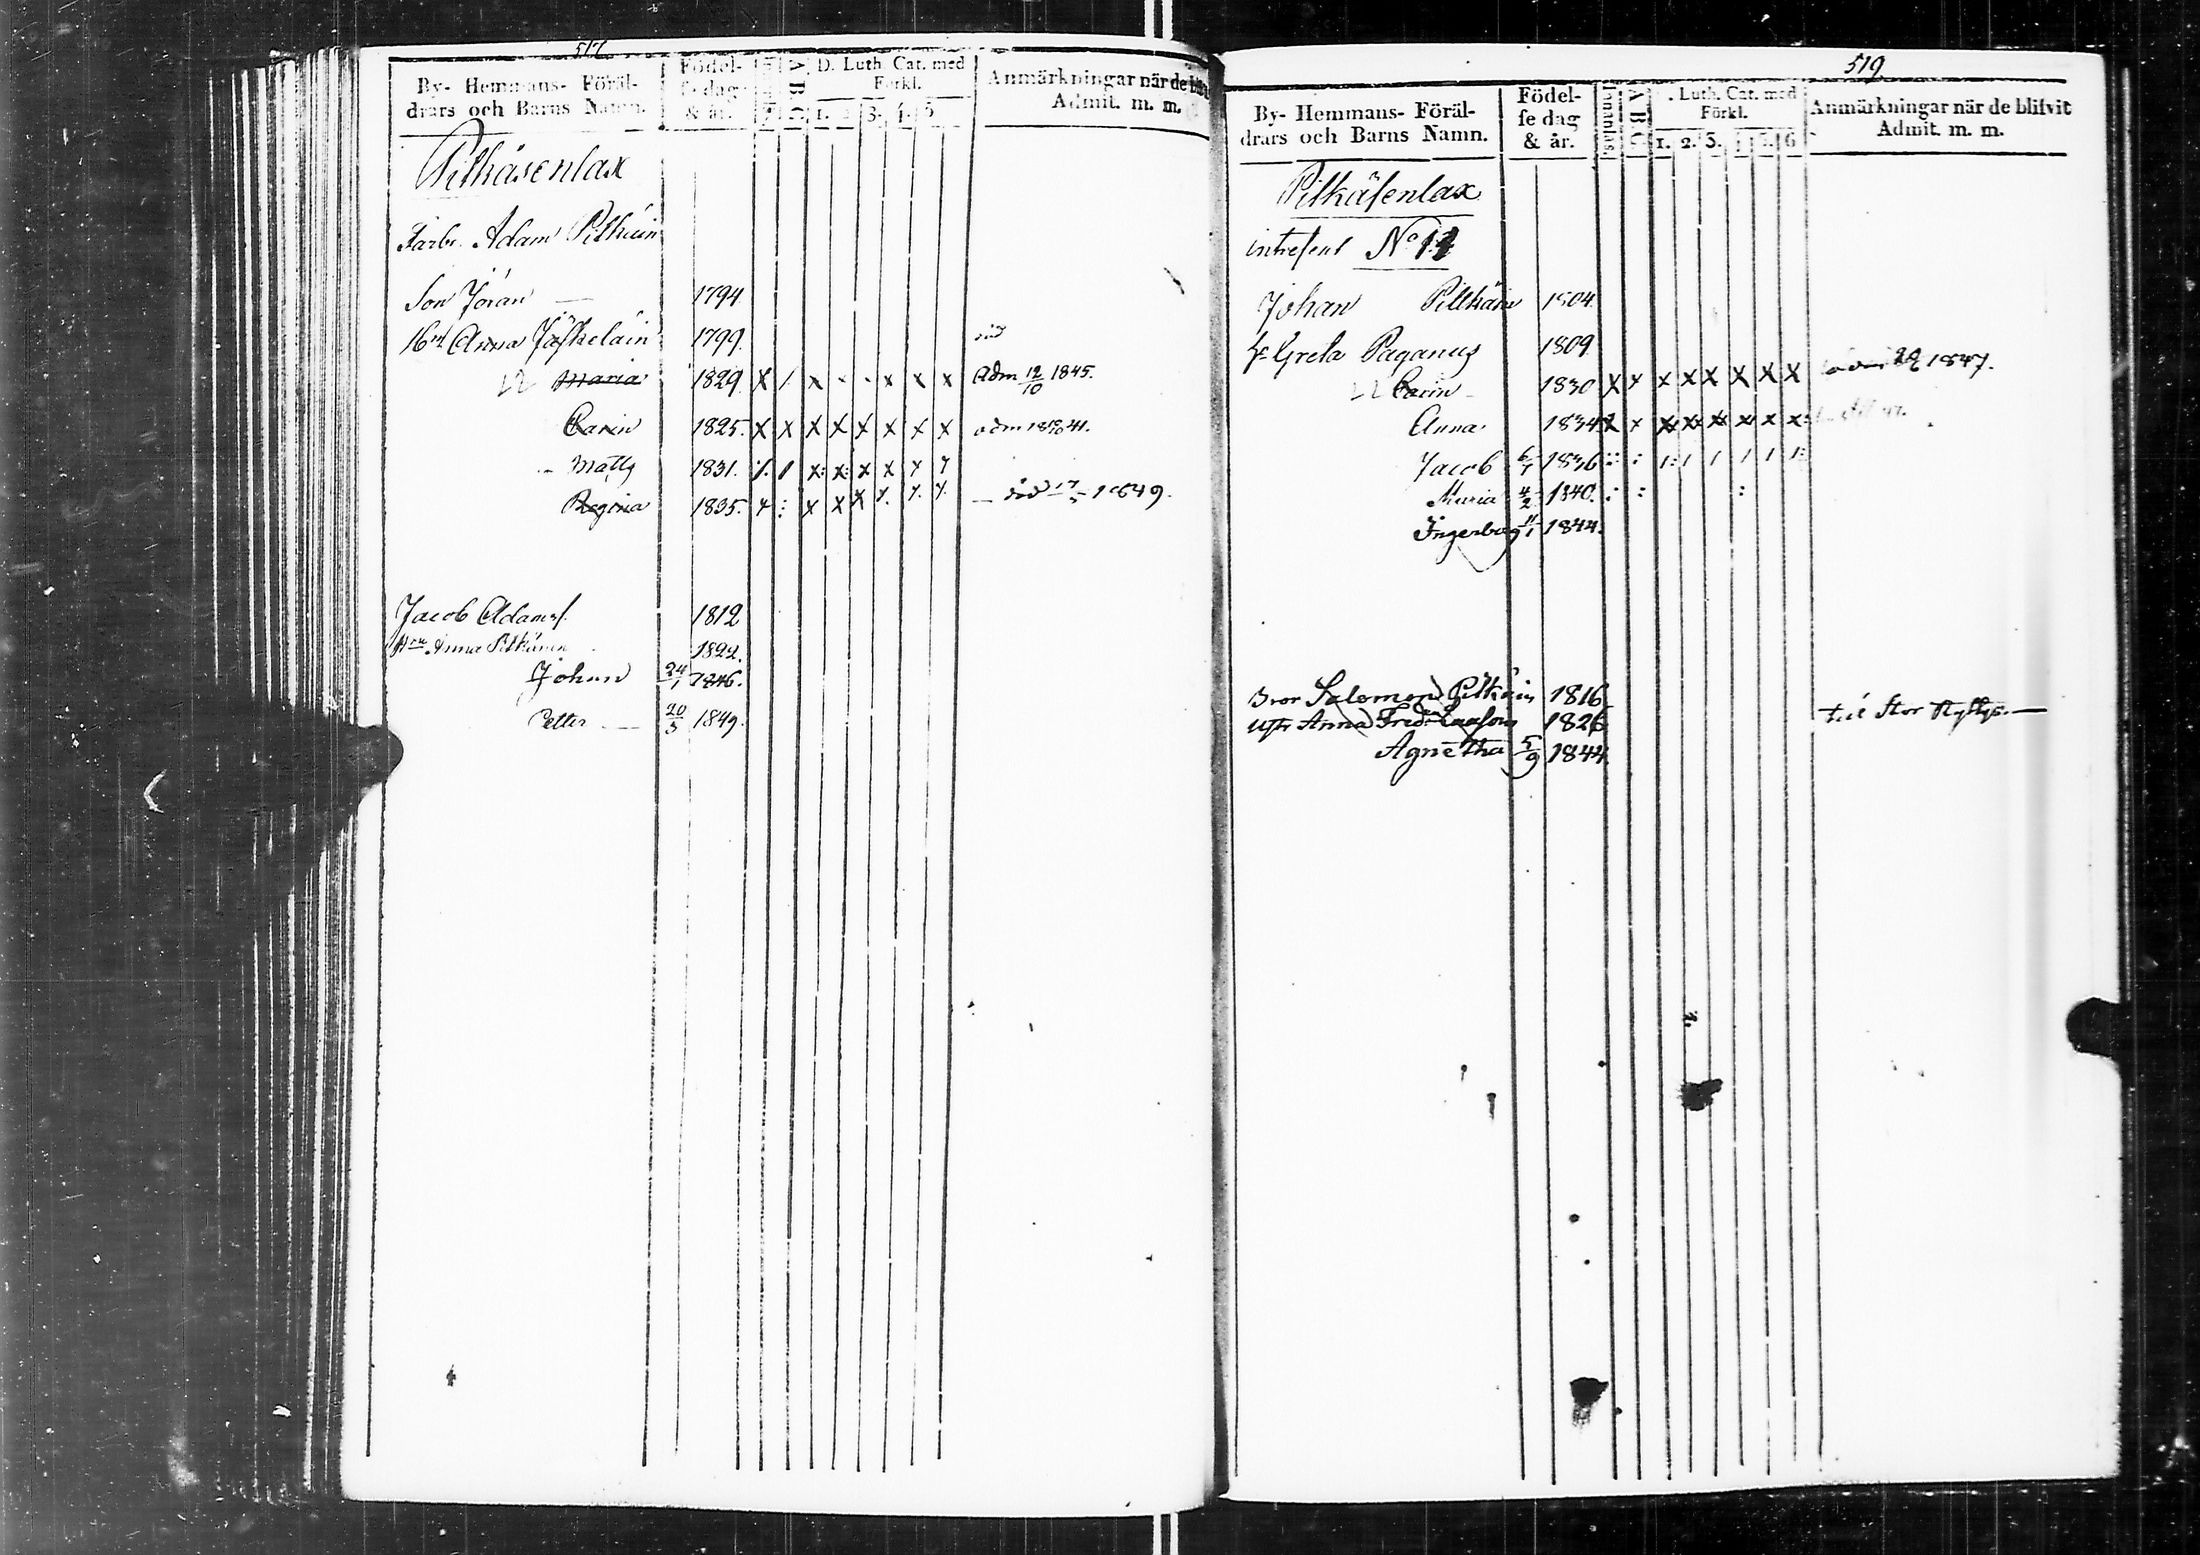 517
By- Hemmans- Föräl-
drars och Barns Namn.
Födel-
se dag
& år.
A B C
D. Luth. Cat. med
Förkl.
1. 2. 3. 4. 5
Anmärkningar när de
Admit. m. m.
Pitkäsenlax
Farbr. Adam Pitkäin
Son Jöran 1794
Anna Jäskeläin 1799.
Maria 1829 X / x - - x x x Adm 12/10 1845.
Carin 1825. X X X X X x x X adm 41.
Matts 1831.
Regina 1835. död 17 1849.
Jacob Adamsf. 1812
Anna Pitkänen 1822.
Johan 24/1 1846.
Petter 20/3 1849.
519
By- Hemmans- Föräl-
drars och Barns Namn.
Födel-
se dag
& år.
Innanläs.
A B C
Luth. Cat. med
Förkl.
1. 2. 3. 5. 6
Anmärkningar när de blifvit
Admit. m. m.
Pitkäsenlax
intressent No 11
Johan Pitkäin 1804.
Greta Paganus 1809
Carin 1830 X x x X X X X X 1847.
Anna 1834
Jacob 6/1 1836
Maria 4/2 1840.
Ingerborg 11/1 1844.
Bror Salomon Pitkäin 1816
Anna Fred. 1826 till Stor
Agnetha 5/9 1844